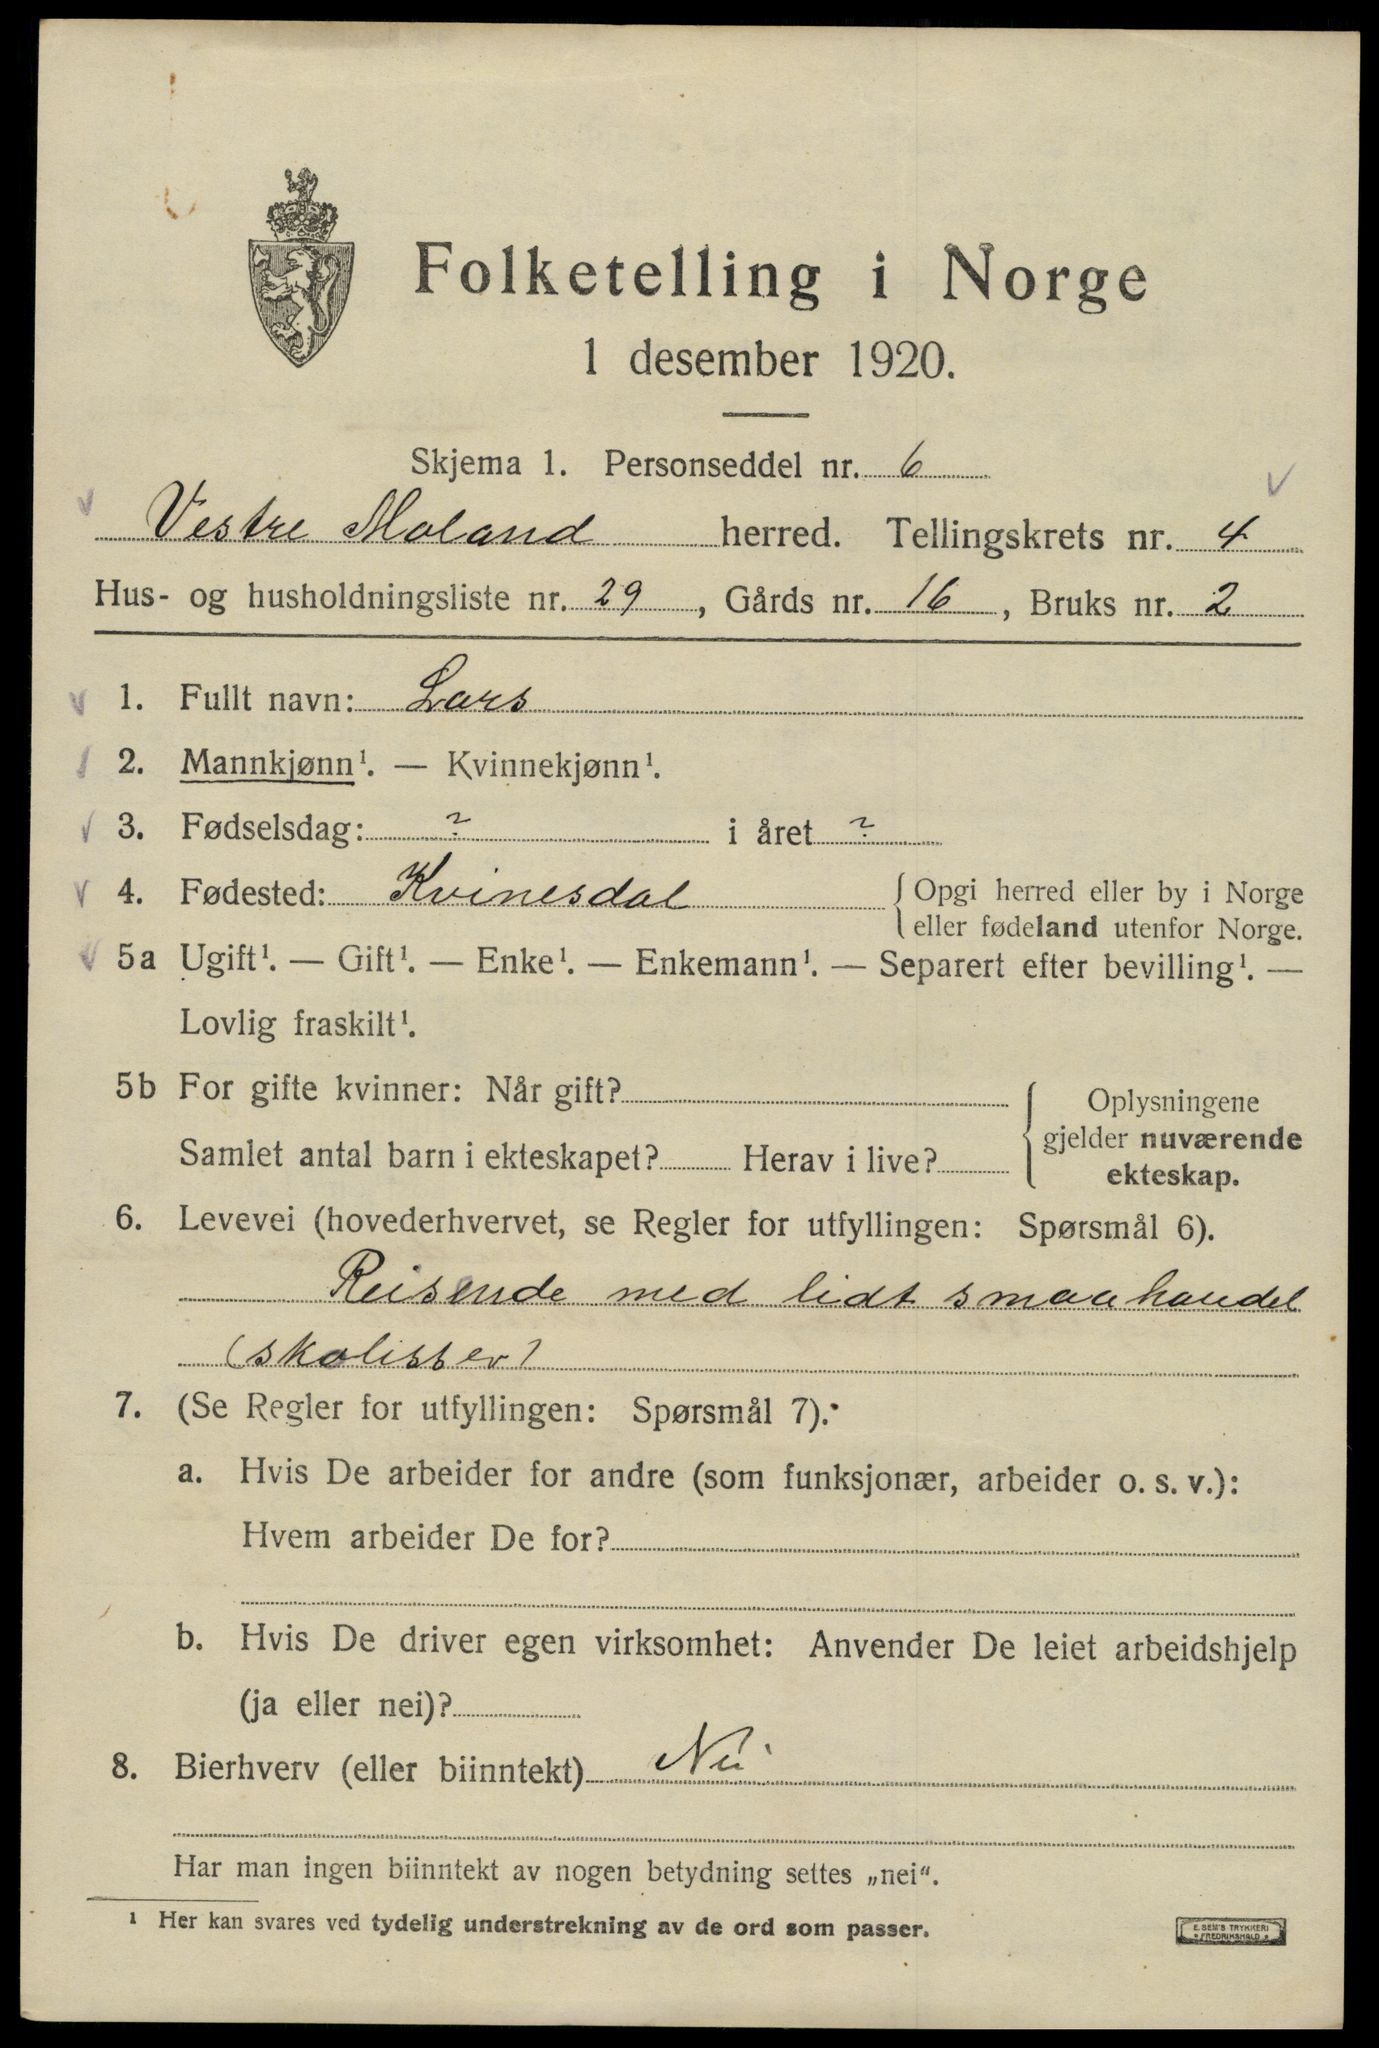 Folketelling i Norge
1 desember 1920.
Skjema 1. Personseddel nr. 6
Vestre Moland herred. Tellingskrets nr. 4
Hus- og husholdningsliste nr. 29, Gårds nr. 16, Bruks nr. 2
1. Fullt navn: Lars
2. Mannkjønn¹. — Kvinnekjønn¹.
3. Fødselsdag: ? i året ?
4. Fødested: Kvinesdal { Opgi herred eller by i Norge
eller fødeland utenfor Norge.
5a Ugift¹. — Gift¹. — Enke¹. — Enkemann¹. — Separert efter bevilling¹. —
Lovlig fraskilt¹.
5b For gifte kvinner: Når gift?
Samlet antal barn i ekteskapet? Herav i live?
Oplysningene
gjelder nuværende
ekteskap.
6. Levevei (hovederhvervet, se Regler for utfyllingen: Spørsmål 6).
Reisende med lidt smaahandel
(skolisser)
7. (Se Regler for utfyllingen: Spørsmål 7).
a. Hvis De arbeider for andre (som funksjonær, arbeider o. s. v.):
Hvem arbeider De for?
b. Hvis De driver egen virksomhet: Anvender De leiet arbeidshjelp
(ja eller nei)?
8. Bierhverv (eller biinntekt) Nei
Har man ingen biinntekt av nogen betydning settes „nei“.
¹ Her kan svares ved tydelig understrekning av de ord som passer.
E. SEM'S TRYKKERI
FREDRIKSHALD